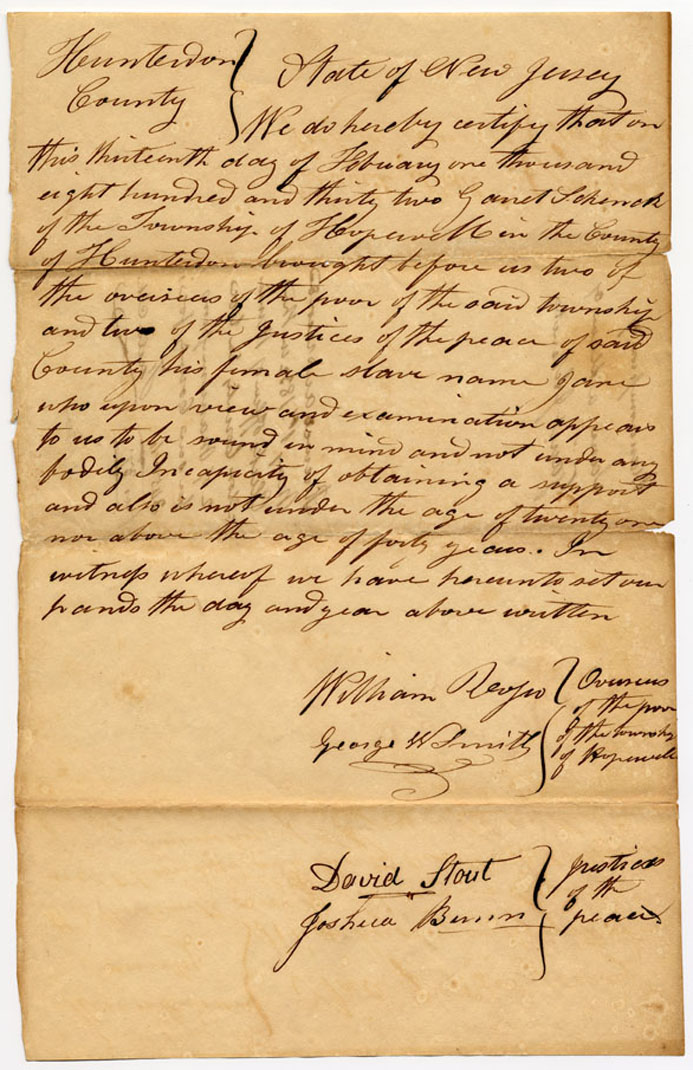 Hunterdon
County
State of New Jersey
We do hereby certify that on
this thirteenth day of February one thousand
eight hundred and thirty two Garret Schenck
of the Township of Hopewell in the County
of Hunterdon brought before us two of
the overseers of the poor of the said township
and two of the Justices of the peace of said
County his female slave name Jane
who upon view and examination appears
to us to be sound in mind and not under any
bodily Incapacity of obtaining a support
and also is not under the age of twenty one
nor above the age of forty years. In
witness whereof we have hereunto set our
hands the day and year above written
William
George W Smith
Overseers
of the poor
of the township
of Hopewell
David Stout
Joshua Bunn
Justices
of the
peace